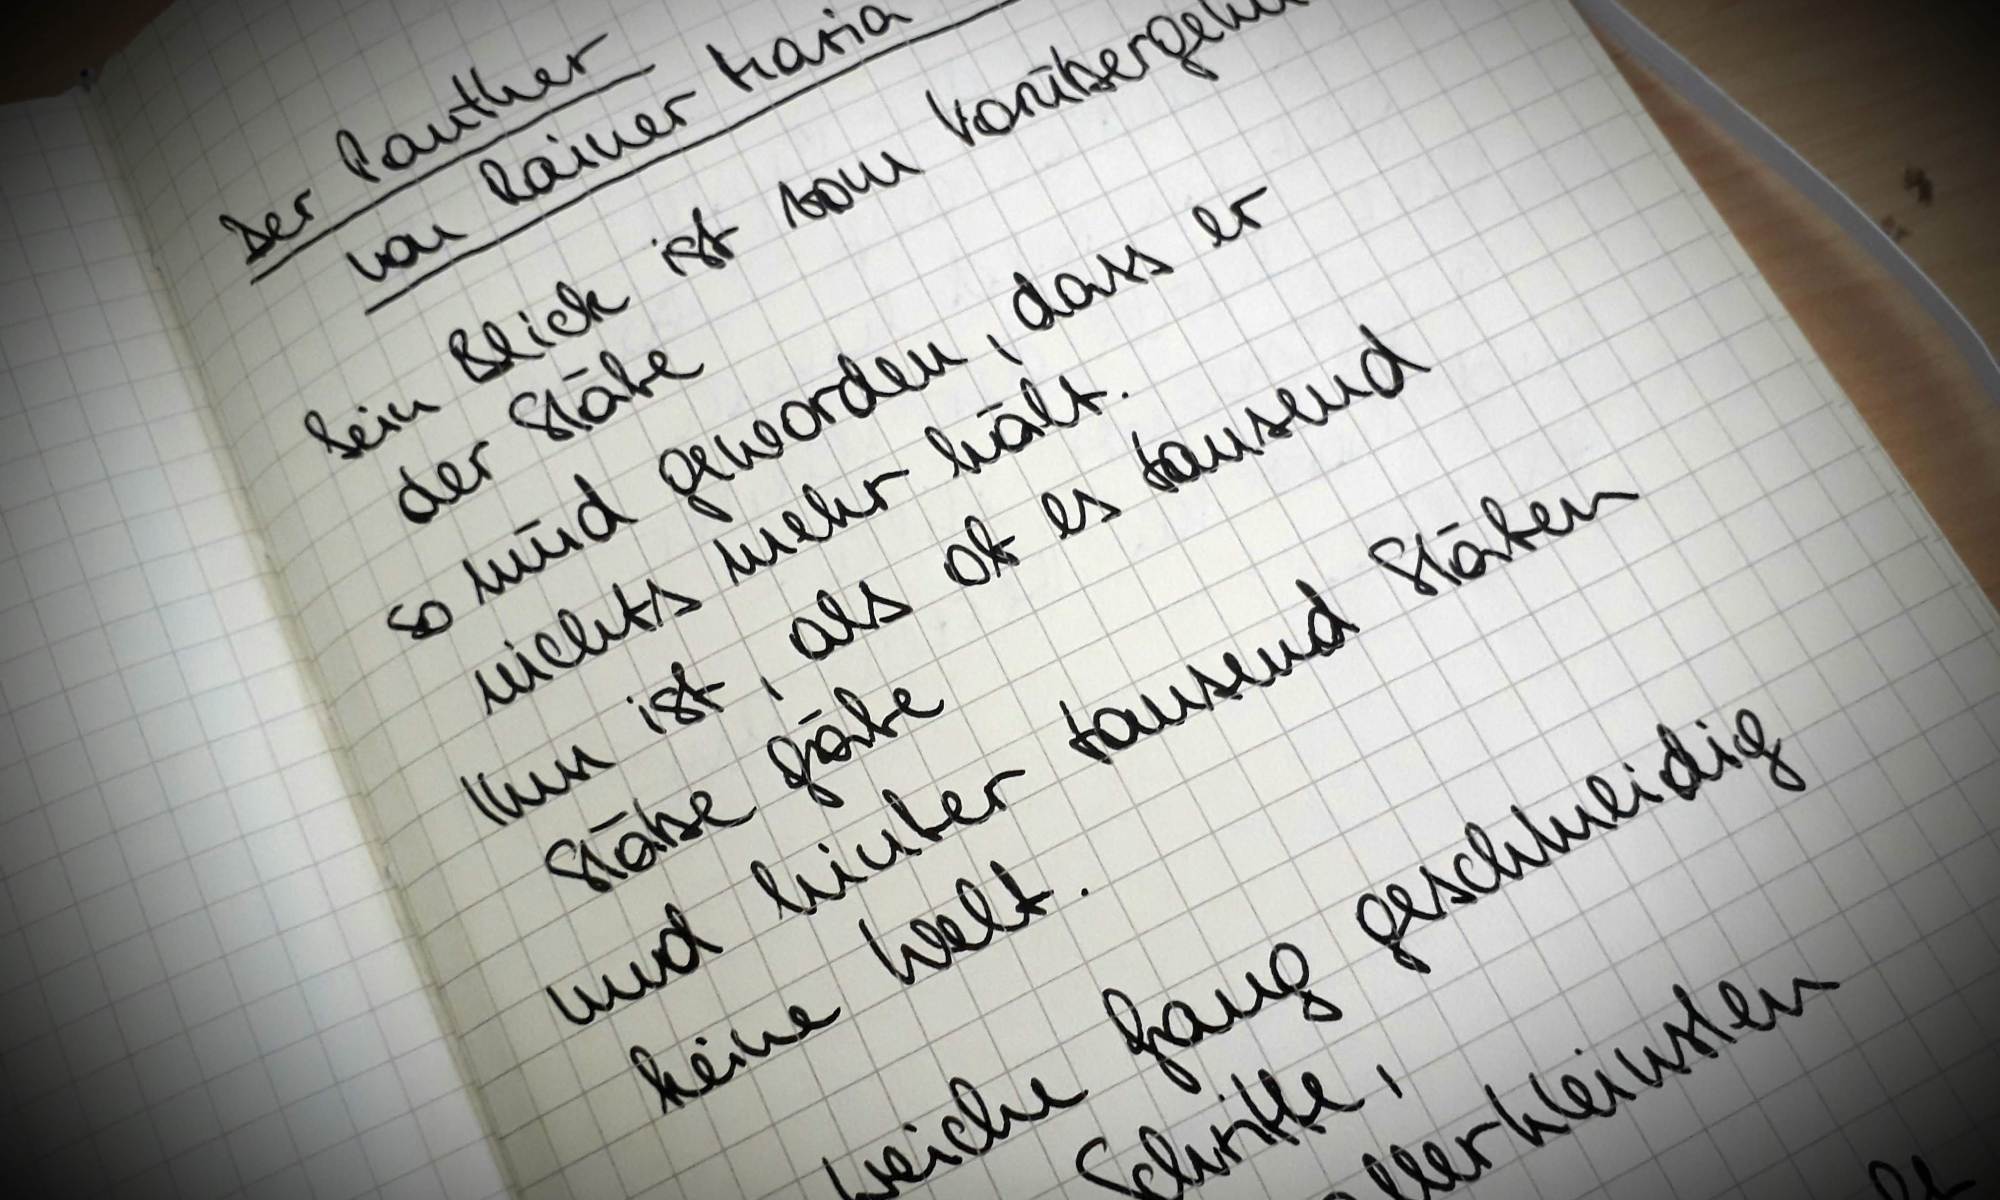 Der Panther
von Rainer Maria
Sein Blick ist vom Vorübergehn
der Stäbe
so müd geworden, dass er
nichts mehr hält.
Ihm ist, als ob es tausend
Stäbe gäbe
und hinter tausend Stäben
keine Welt.
weiche Gang geschmeidig
Schritte,
allerkleinsten